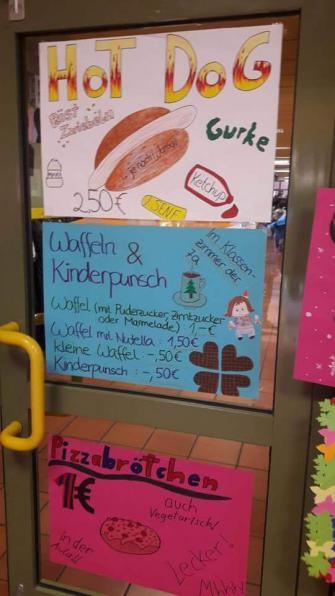 HOT DOG
Röst
Zwiebeln
Gurke
Ketchup
2,50€
SENF
Waffeln &
Kinderpunsch
Im Klassen-
zimmer der
Waffel (mit Puderzucker, Zimtzucker
oder Marmelade) : 1,-€
Waffel mit Nutella : 1,50€
kleine Waffel : -,50€
Kinderpunsch : -,50€
Pizzabrötchen
1€
auch
Vegetarisch!
in der
Lecker!